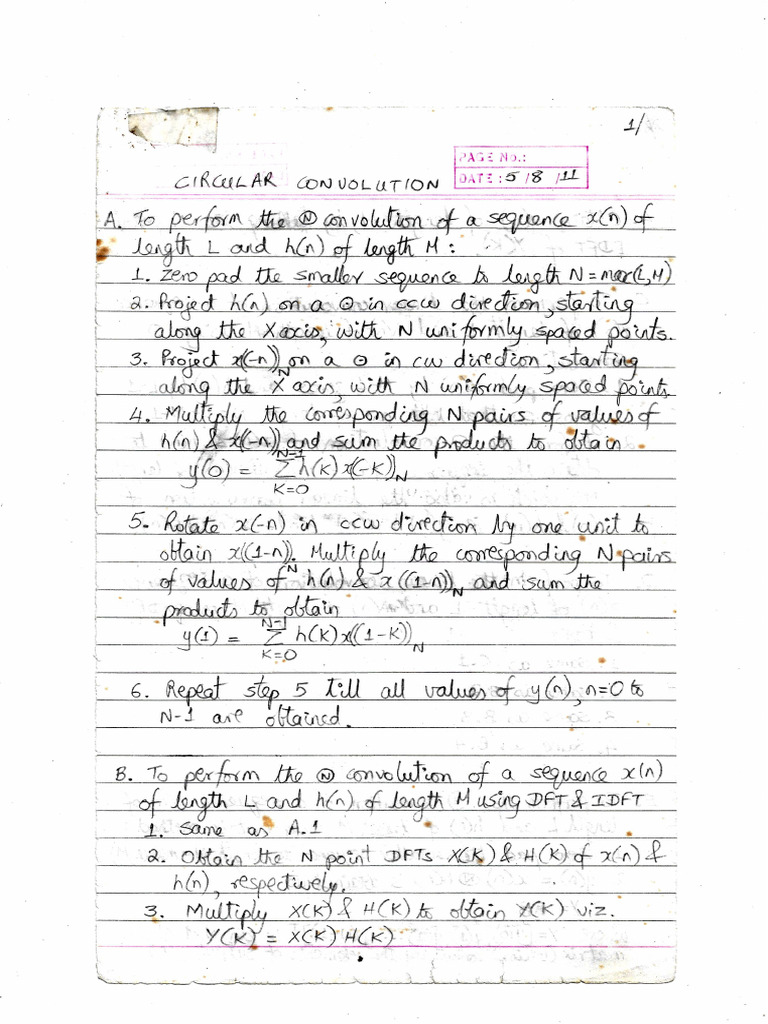 1/
PAGE No.:
DATE : 5 /8 /11
CIRCULAR CONVOLUTION
A. To perform the Ⓝ convolution of a sequence x(n) of
length L and h(n) of length M :
1. Zero pad the smaller sequence to length N = max(L,M)
2. Project h(n) on a ⊙ in ccw direction, starting
along the X axis, with N uniformly spaced points.
3. Project x((-n))N on a ⊙ in cw direction, starting
along the X axis, with N uniformly spaced points.
4. Multiply the corresponding N pairs of values of
h(n) & x((-n)) and sum the products to obtain
y(0) = N-1 Σ K=0 h(K) x(-K))N
5. Rotate x(-n) in ccw direction by one unit to
obtain x((1-n))N. Multiply the corresponding N pairs
of values of h(n) & x((1-n))N and sum the
products to obtain
y(1) = N-1 Σ K=0 h(K) x((1-K))N
6. Repeat step 5 till all values of y(n), n=0 to
N-1 are obtained.
B. To perform the Ⓝ convolution of a sequence x(n)
of length L and h(n) of length M using DFT & IDFT
1. Same as A.1
2. Obtain the N point DFTs X(K) & H(K) of x(n) &
h(n), respectively.
3. Multiply X(K) & H(K) to obtain Y(K) viz.
Y(K) = X(K) H(K)